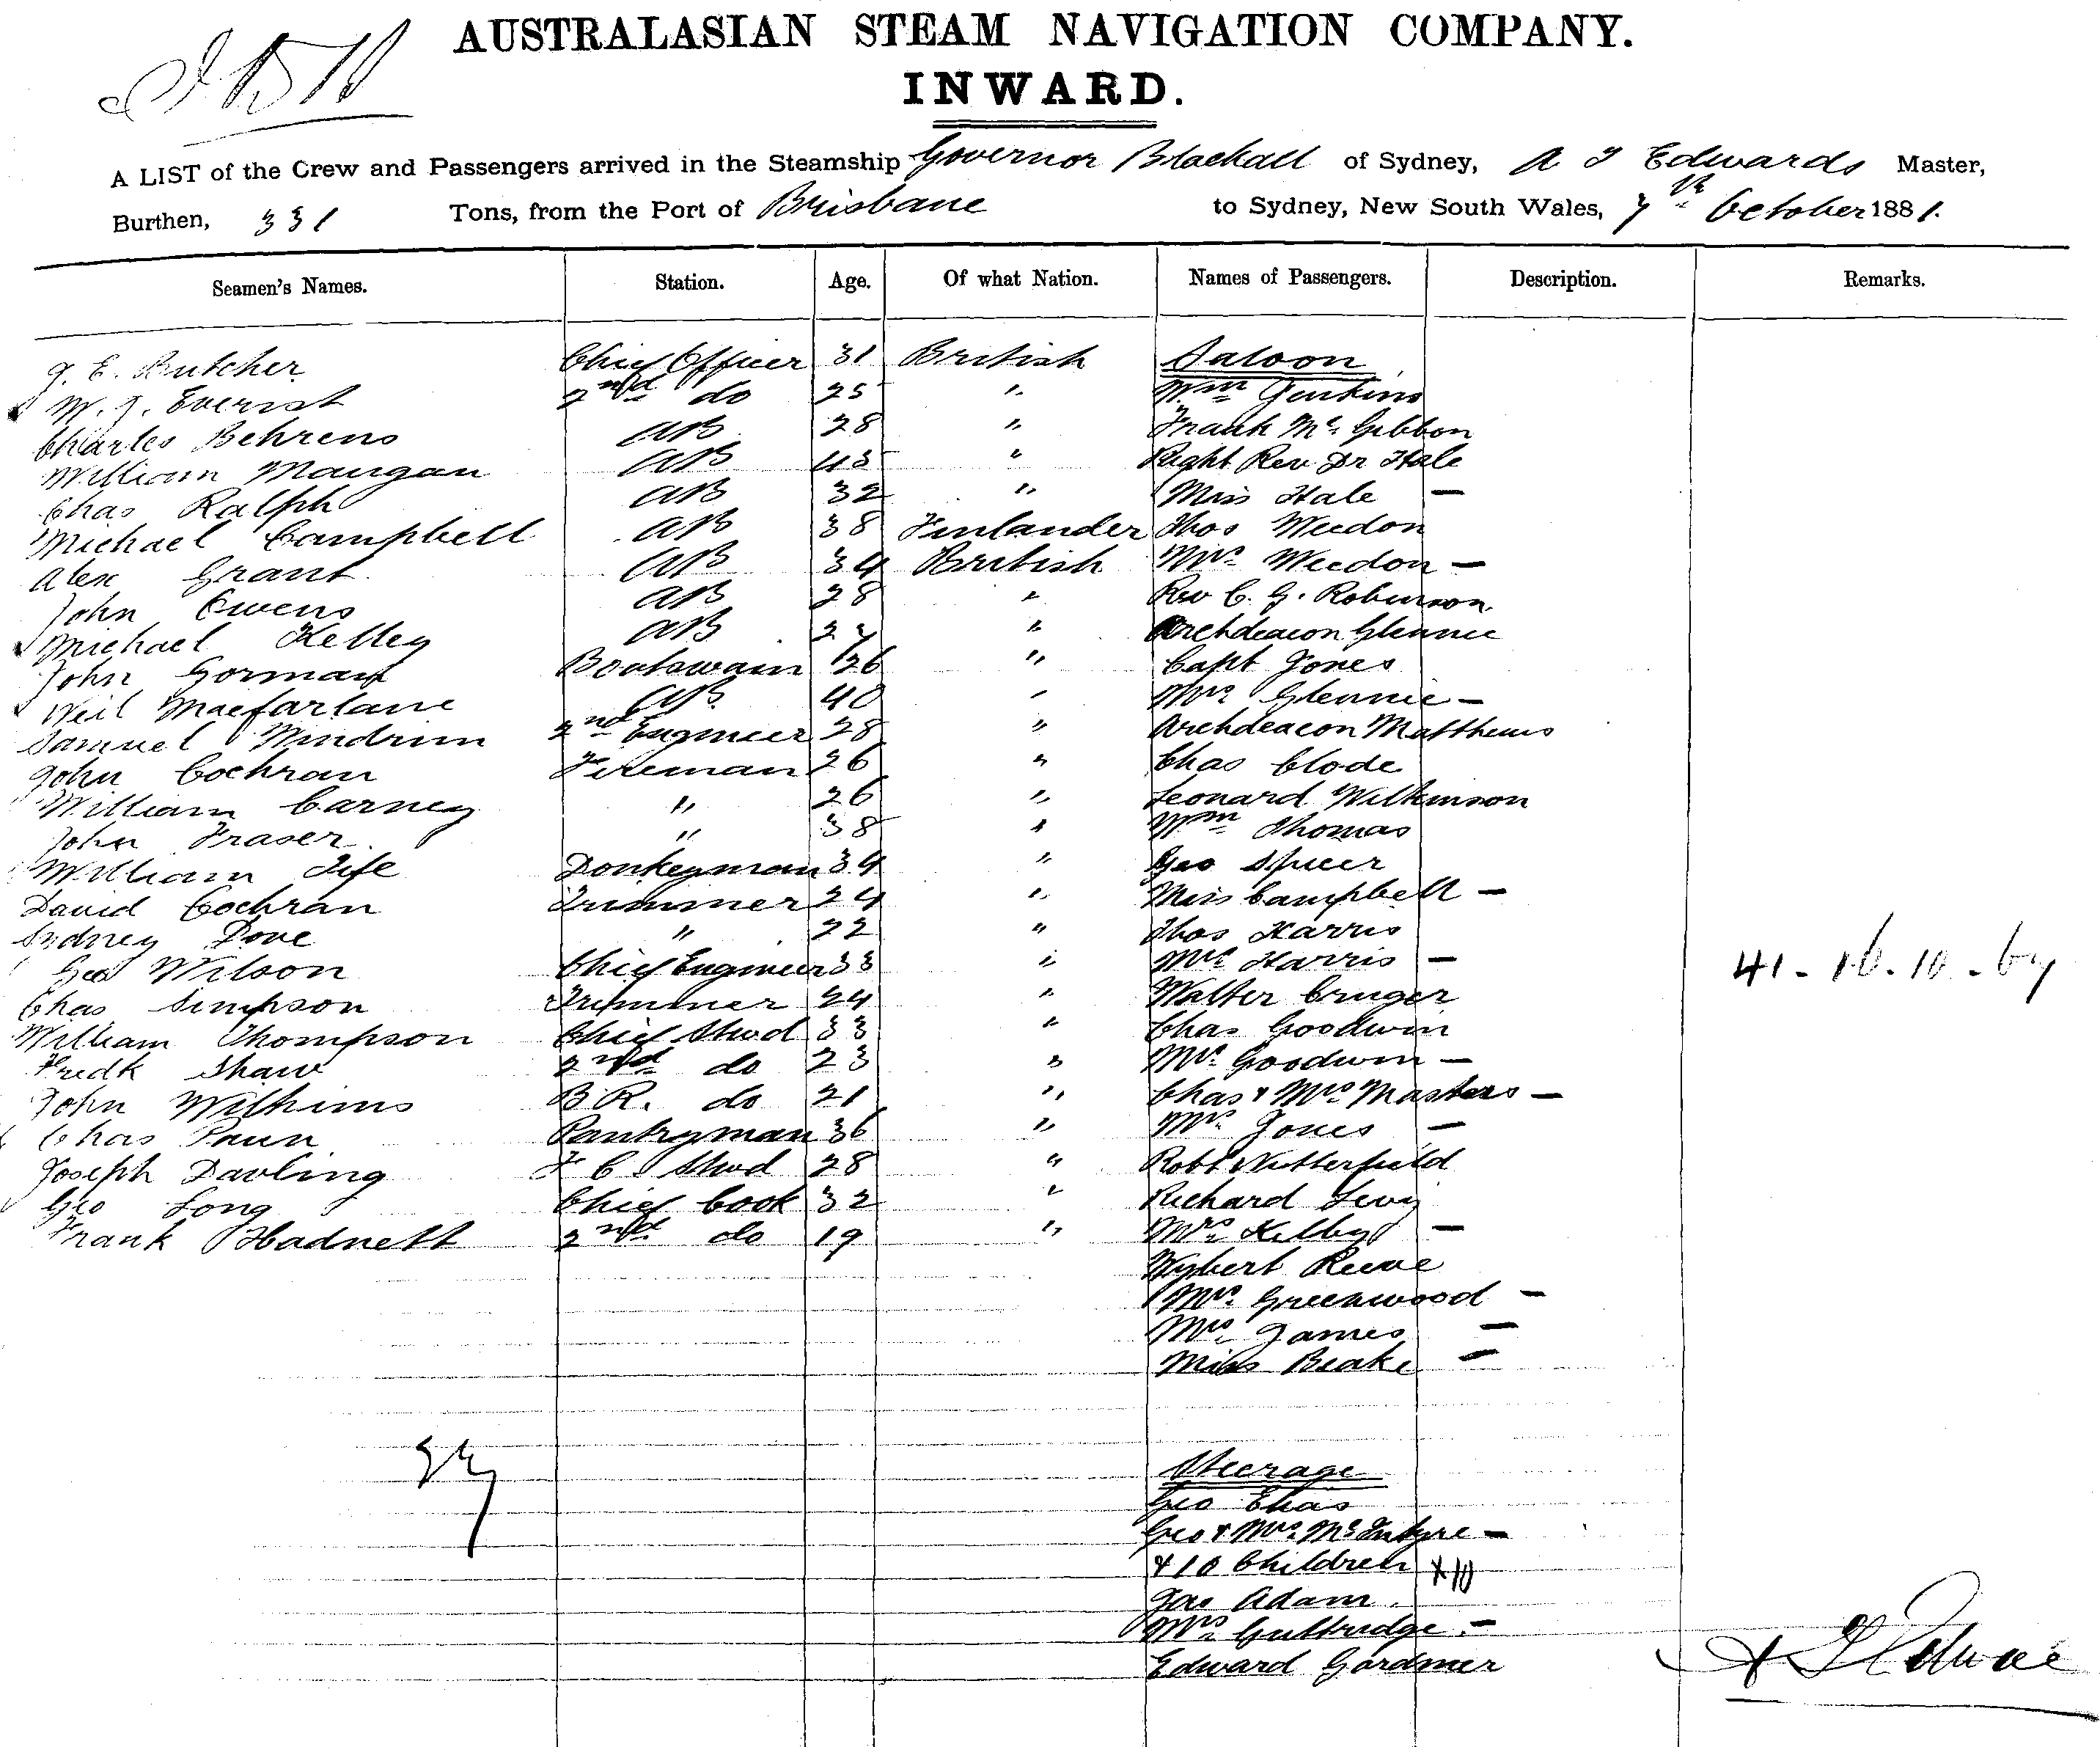 AUSTRALASIAN STEAM NAVIGATION COMPANY.
INWARD.
A LIST of the Crew and Passengers arrived in the Steamship Governor Blackall of Sydney, A T Edwards Master,
Burthen, 331 Tons, from the Port of Brisbane to Sydney, New South Wales, 7th October 1881.
Seamen's Names. Station. Age. Of what Nation. Names of Passengers. Description. Remarks.
J. E. Butcher Chief Officer 31 British Saloon
W. J. Everist 2nd do 25 " Wm Jenkins
Charles Behrens AB 28 " Frank McGibbon
William Mangan AB 45 " Right Rev Dr Hale
Chas Ralph AB 32 " Miss Hale —
Michael Campbell AB 38 Finlander Thos Weedon
Alex Grant AB 34 British Mrs Weedon —
John Owens AB 28 " Rev C. G. Robinson
Michael Kelley AB 27 " Archdeacon Glennie
John Gorman Boatswain 26 " Capt Jones
Neil Macfarlane AB 40 " Mrs Glennie —
Samuel Windrim 2nd Engineer 28 " Archdeacon Matthews
John Cochran Fireman 26 " Chas Clode
William Carney " 26 " Leonard Wilkinson
John Fraser " 38 " Wm Thomas
William Fife Donkeyman 34 " Geo Spicer
David Cochran Trimmer 24 " Miss Campbell —
Sydney Dove " 22 " Thos Harris
Geo Wilson Chief Engineer 33 " Mrs Harris —
Chas Simpson Trimmer 24 " Walter Cruger
William Thompson Chief Stwd 33 " Chas Goodwin
Fredk Shaw 2nd do 23 " Mrs Goodwin —
John Wilkins B.R. do 21 " Chas & Mrs Masters —
Chas Paun Pantryman 36 " Mrs Jones —
Joseph Darling F C Stwd 28 " Robt
Geo Long Chief Cook 32 " Richard Levy
Frank Hadnett 2nd do 19 " Mrs Kilby —
Wybert Reeve
Mrs Greenwood —
Mrs James —
Miss Beake —
41-16.10-by
27
Steerage
Geo Elias
Geo & Mrs McIntyre —
& 10 Children
Jas Adam
Mrs Guttridge —
Edward Gardiner